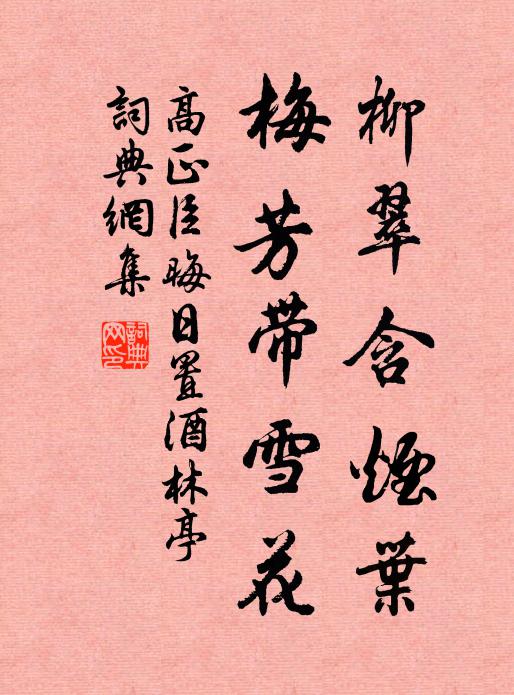 柳翠含煙葉
梅芳帶雪花
高正臣晦日置酒林亭
詞典網集
詞典网印